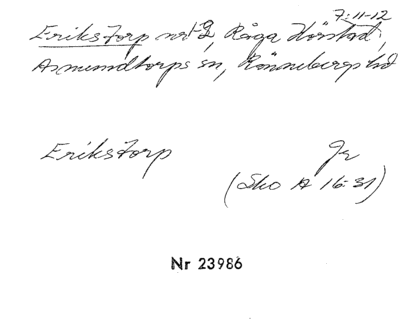 7:11-12
Erikstorp nr 1-2, Råga Hörstad,
Asmundtorps sn, Rönnebergs hd
Erikstorp Gr
(Sko A 16:31)
Nr 23986